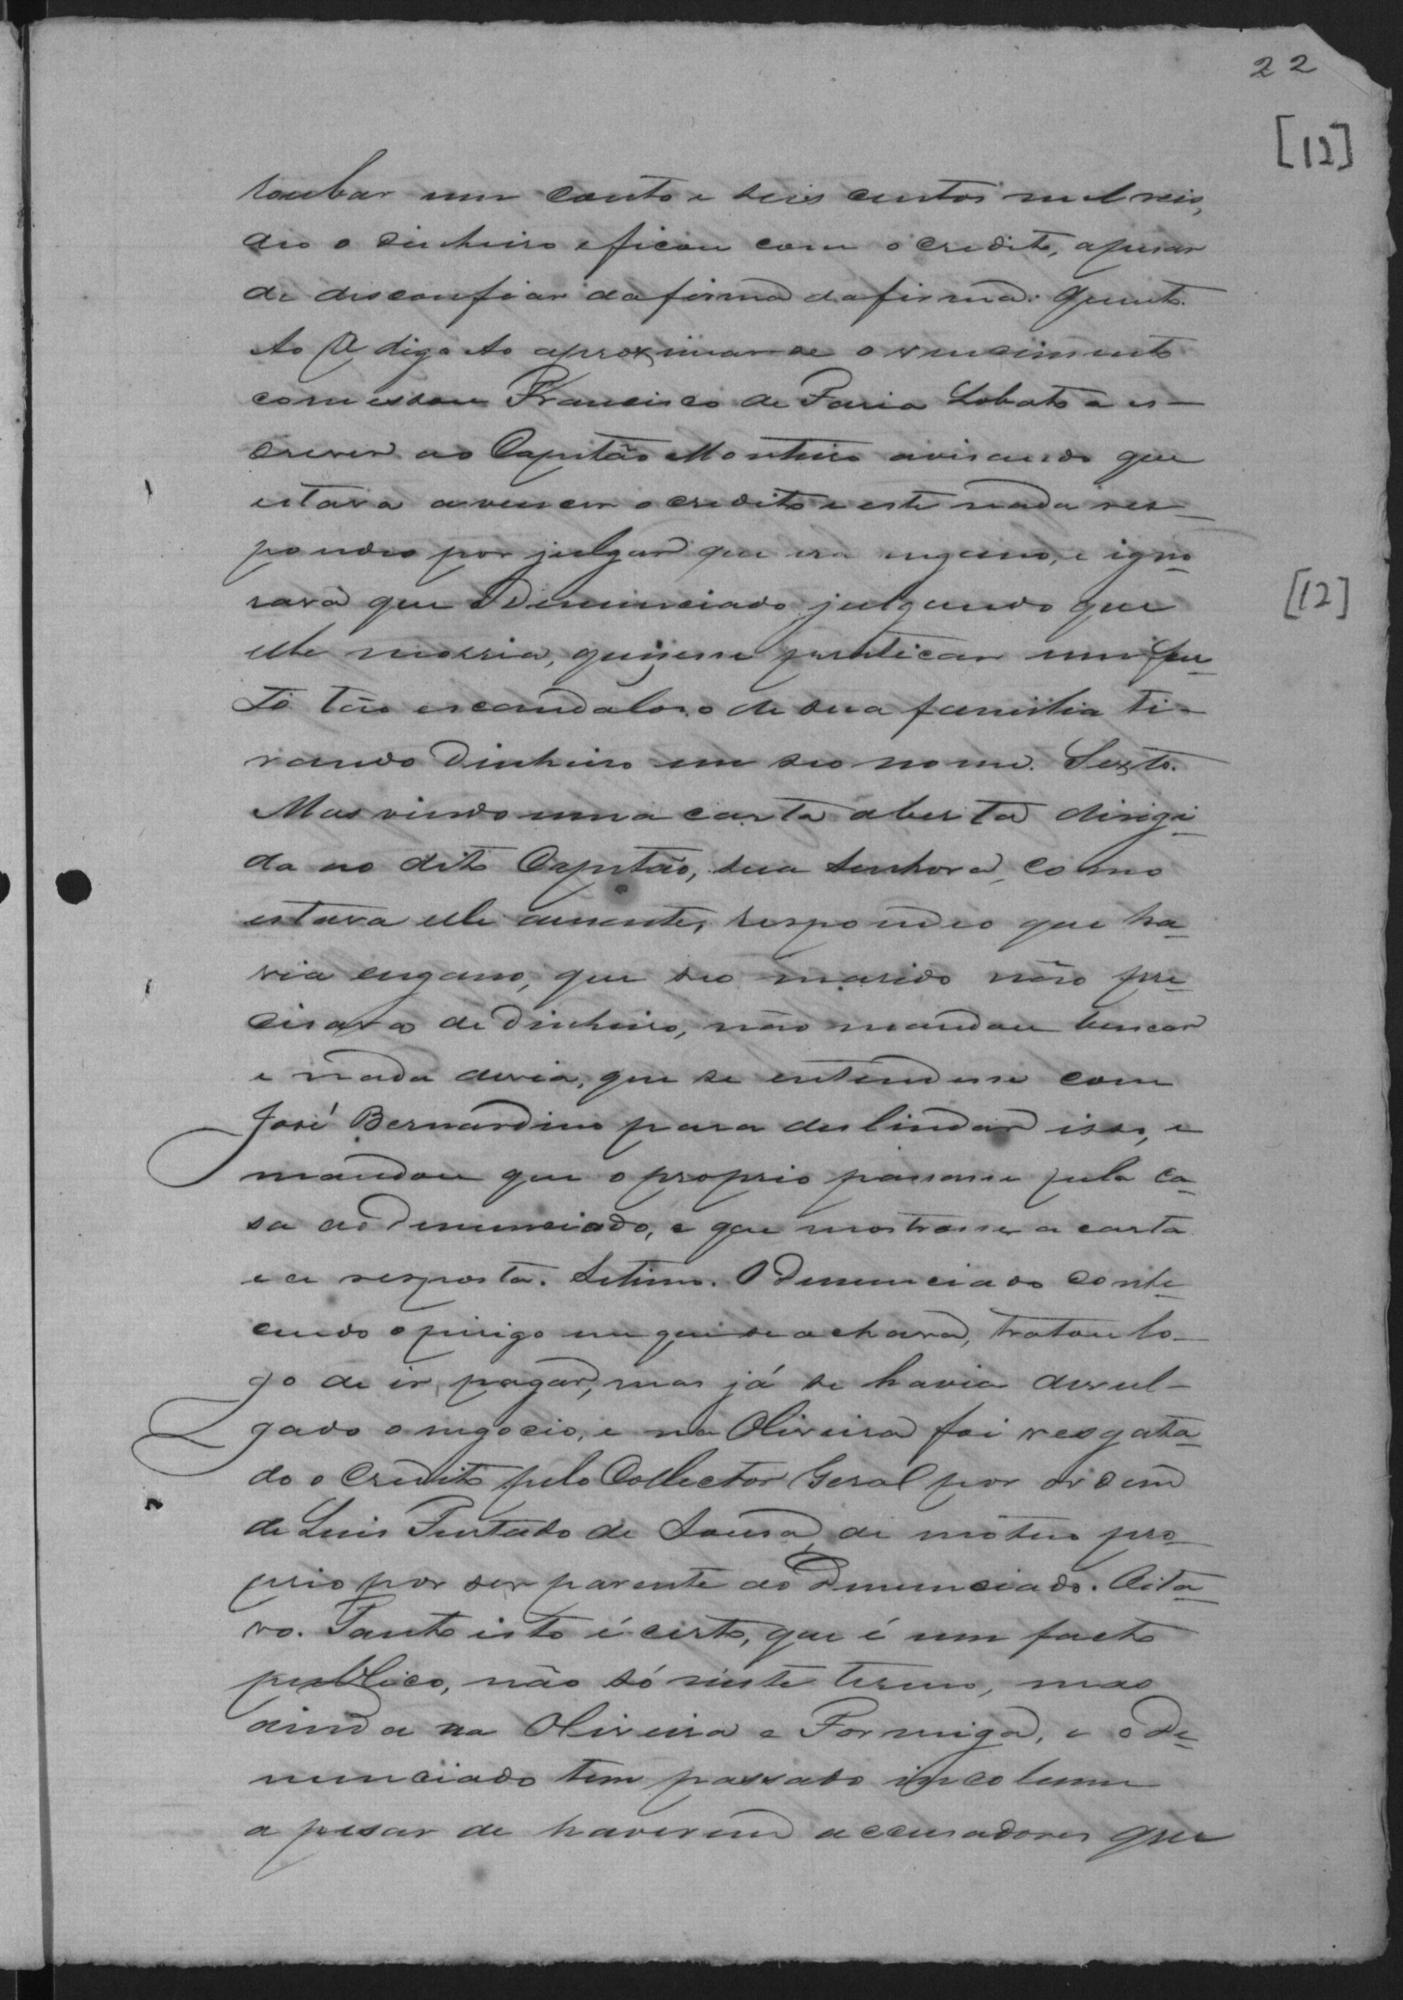 22
[12]
roubar um conto e seis centos mil reis,
deo o dinheiro e ficou com o credito, apesar
de desconfiar da firma da firma. Quinto.
Ao A digo Ao aproximar se o vencimento
comessou Francisco de Faria Lobato a es-
crever ao Capitão Monteiro avisando que
estava a vencer o credito e este nada res-
pondeo por julgar que era engano, e igno-
rava que o Denunciado, julgando que
elle morria, quizesse praticar um fac-
to tão escandaloso de sua familia ti-
rando dinheiro em seo nome. Sexto.
Mas vindo uma carta aberta dirigi-
da ao dito Capitão, sua Senhora, como
estava elle ausente, respondeo que ha-
via engano, que seo marido não pre-
cisava de dinheiro, não mandou buscar
e nada devia, que se entendesse com
José Bernardino para deslindar isso, e
mandou que o proprio passasse pela ca-
sa do denunciado, e que mostrasse a carta
e a resposta. Setimo. O Denunciado conhe-
cendo o perigo em que se achava, tratou lo-
go de ir pagar, mas já se havia devul-
gado o negocio, e na Oliveira foi resgata-
do o Credito pelo Collector Geral por ordem
de Luis Furtado de Sousa, de moteo pro-
prio por ser parente do Denunciado. Oita-
vo. Tanto isto é certo, que é um facto
publico, não só neste termo, mas
ainda na Oliveira e Formiga, e o de-
nunciado tem passado incolume
a pesar de haverem accusadores que
[12]